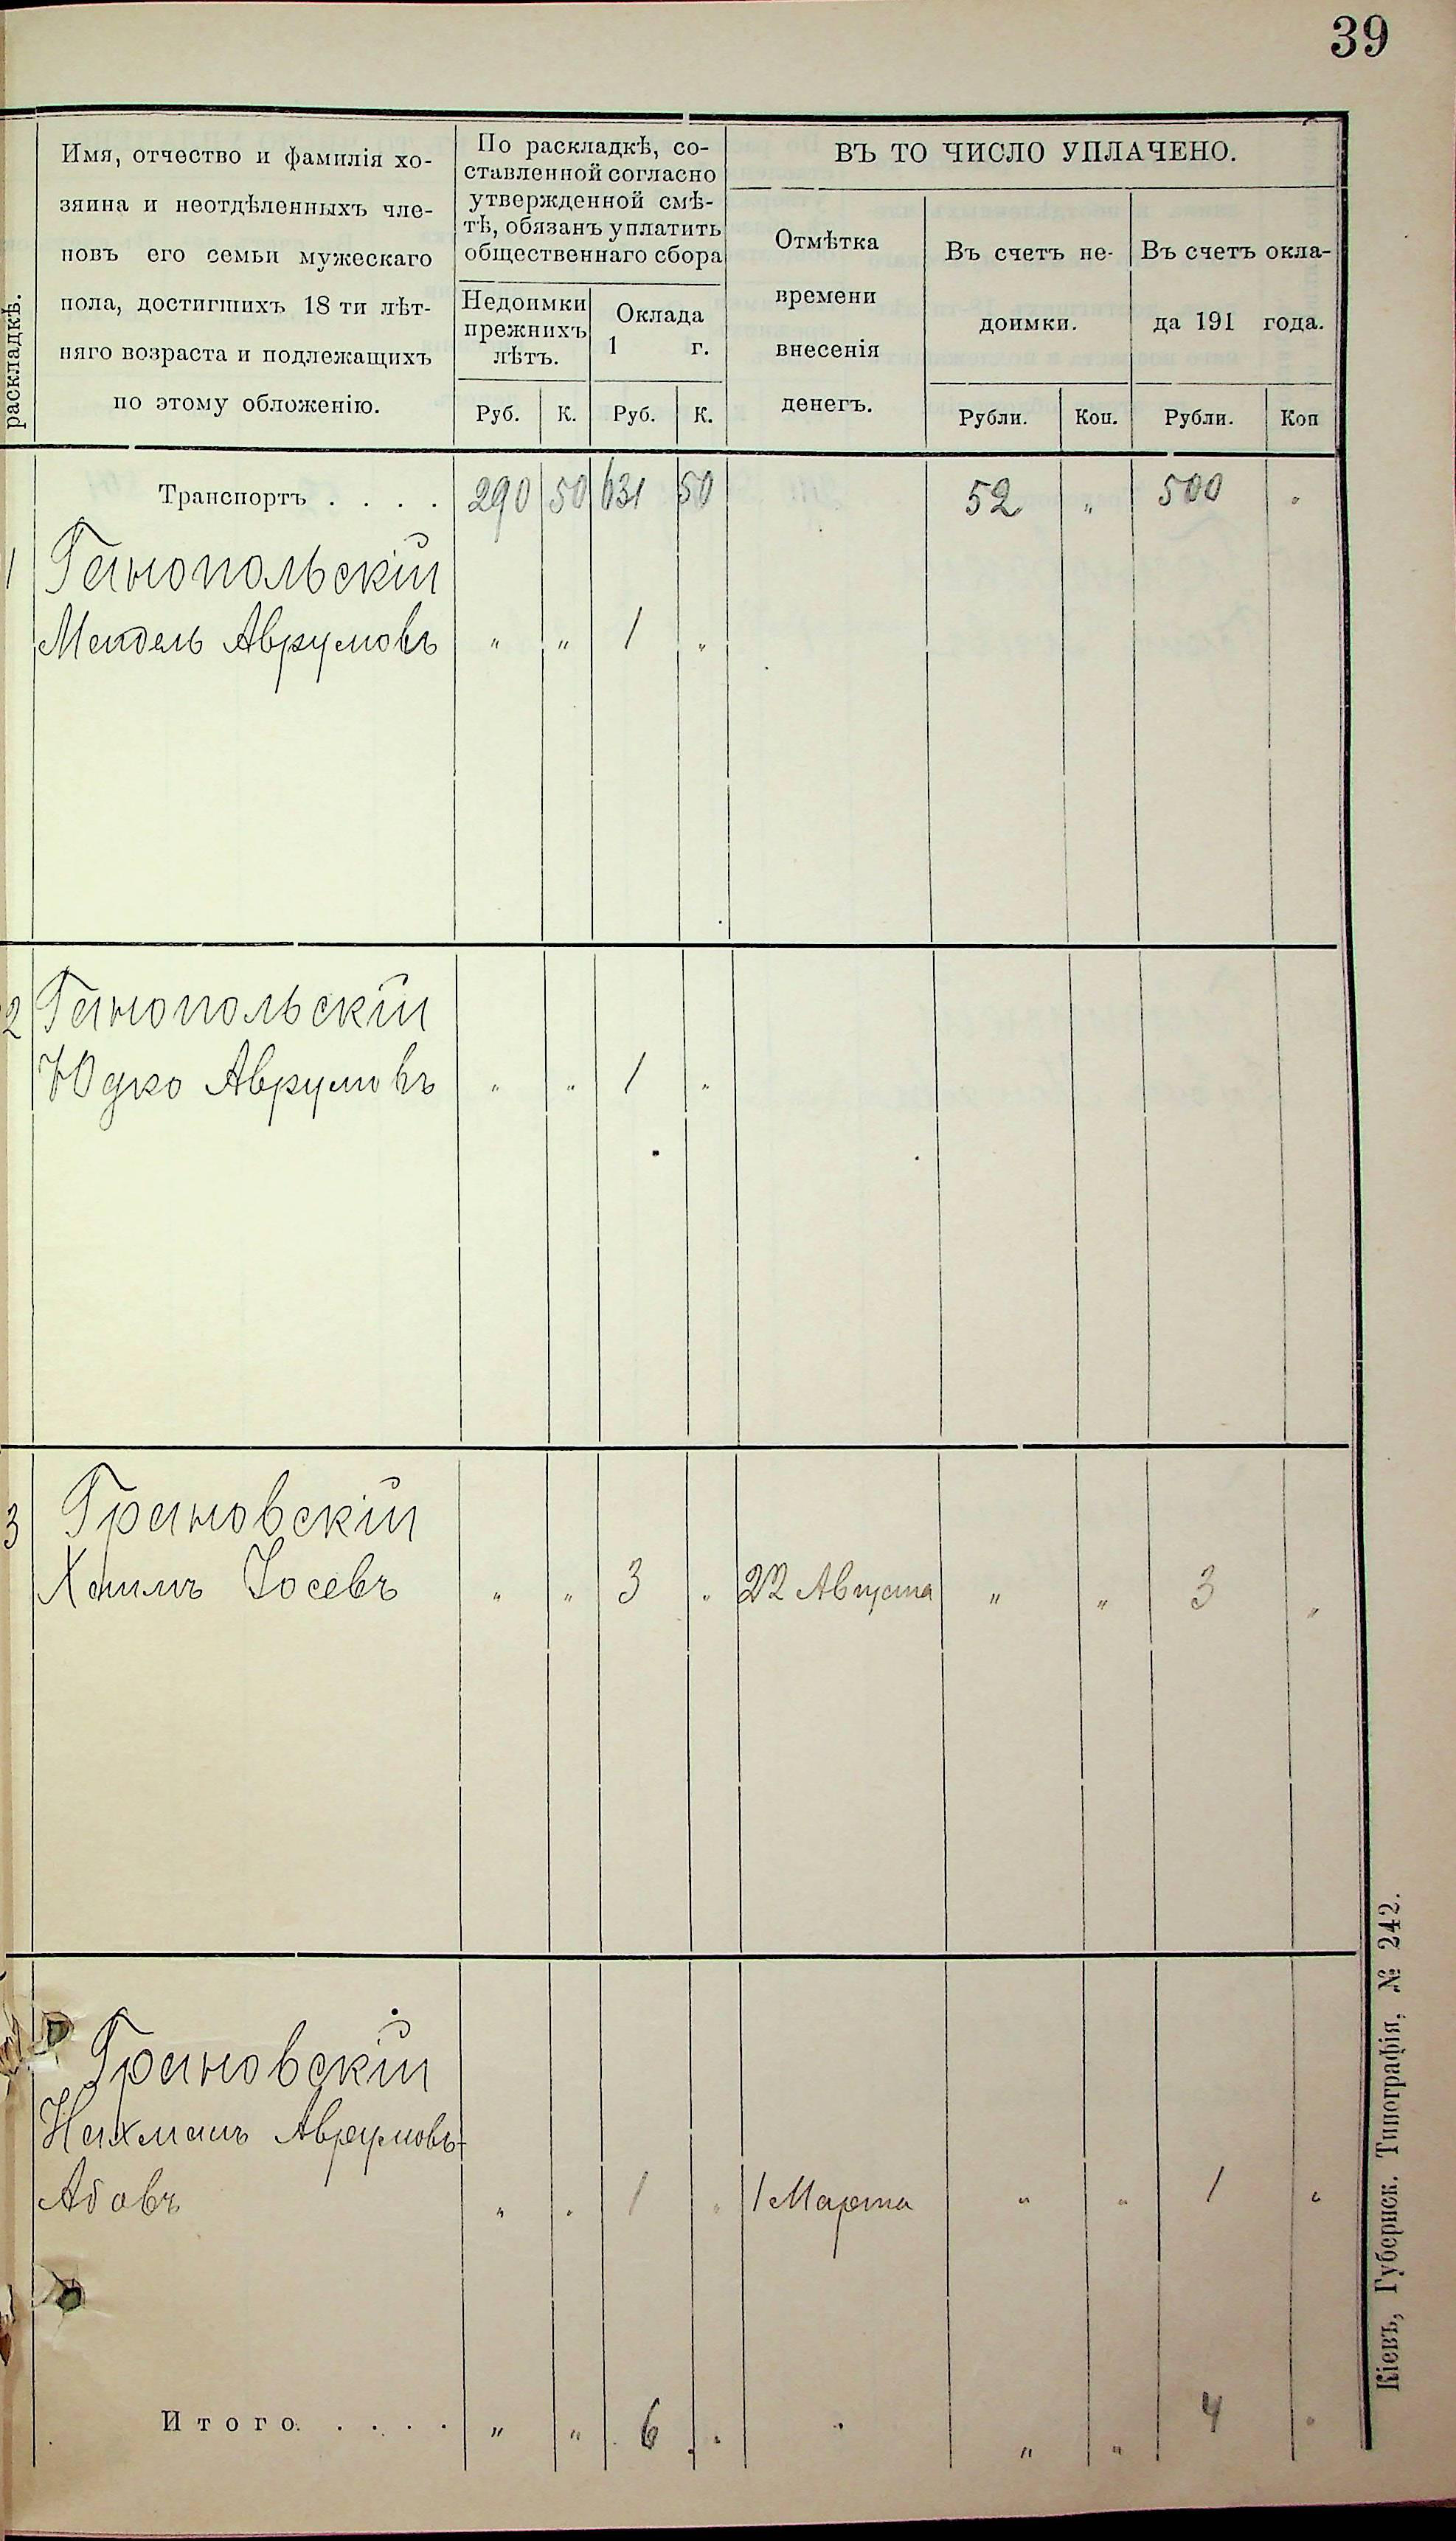 39
раскладкѣ.
Имя, отчество и фамилія хо-
зяина и неотдѣленныхъ чле-
новъ его семьи мужескаго
пола, достигшихъ 18 ти лѣт-
няго возраста и подлежащихъ
по этому обложенію.
По раскладкѣ, со-
ставленной согласно
утвержденной смѣ-
тѣ, обязанъ уплатить
общественнаго сбора
Недоимки
прежнихъ
лѣтъ.
Оклада
1 г.
Руб. К. Руб. К.
ВЪ ТО ЧИСЛО УПЛАЧЕНО.
Отмѣтка
времени
внесенія
денегъ.
Въ счетъ не-
доимки.
Рубли. Коп.
Въ счетъ окла-
да 191 года.
Рубли. Коп
Транспортъ . . . . 290 50 631 50 52 " 500 "
1 Ганопольскій
Мендель Аврумовъ " " 1 "
2 Ганопольскій
Юдко Аврумовъ " " 1 "
3 Грановскій
Хаимъ Іосевъ " " 3 " 22 Августа " " 3 "
Грановскій
Нахманъ Аврумовъ-
Абовъ " " 1 " 1 Марта " " 1 "
Итого. . . . . " " 6 " " " 4 "
Кіевъ, Губернск. Типографія, № 242.